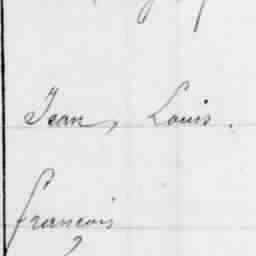 Jean, Louis.
françois